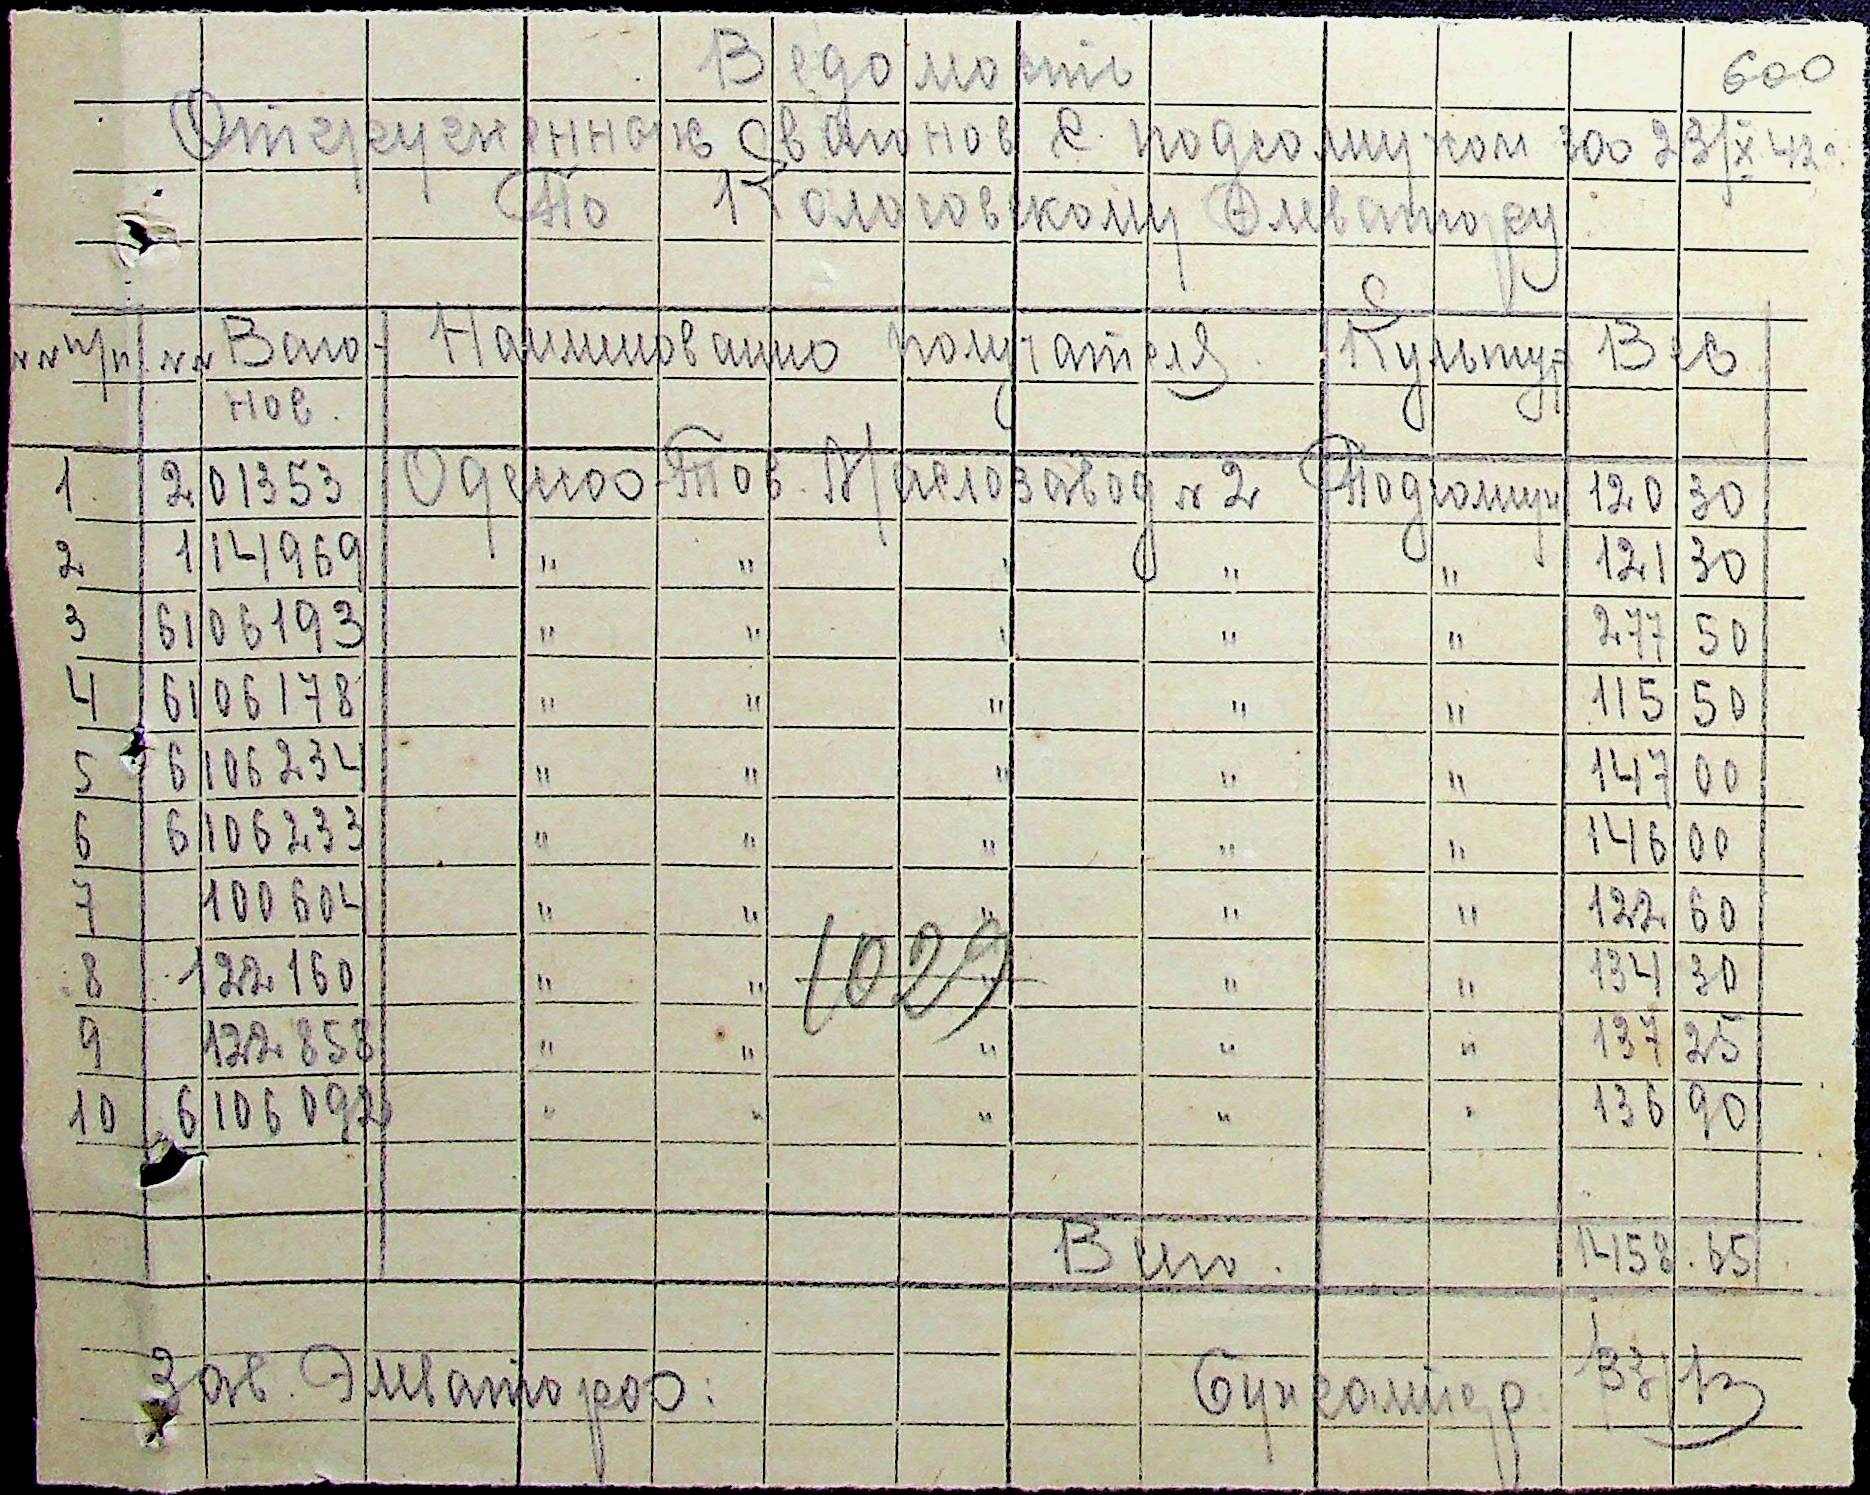 600
Ведомость
Отгруженных вагонов с подсолнухом за 23/X 42 г.
По Кологовскому Элеватору
№№ п/п. №№ Вагонов. Наименование получателя. Культур Вес
1. 201353 Одесса-Тов. Маслозавод № 2 Подсолнух 120 30
2 114969 " " " " " 121 30
3 6106193 " " " " " 277 50
4 6106178 " " " " " 115 50
5 6106234 " " " " " 147 00
6 6106233 " " " " " 146 00
7 100604 " " " " " 122 60
8 122160 " " " " " 134 30
9 122858 " " " " " 137 25
10 6106092 " " " " " 136 90
1029
Всего. 1458.65
Зав. Элеватора: Бухгалтер.